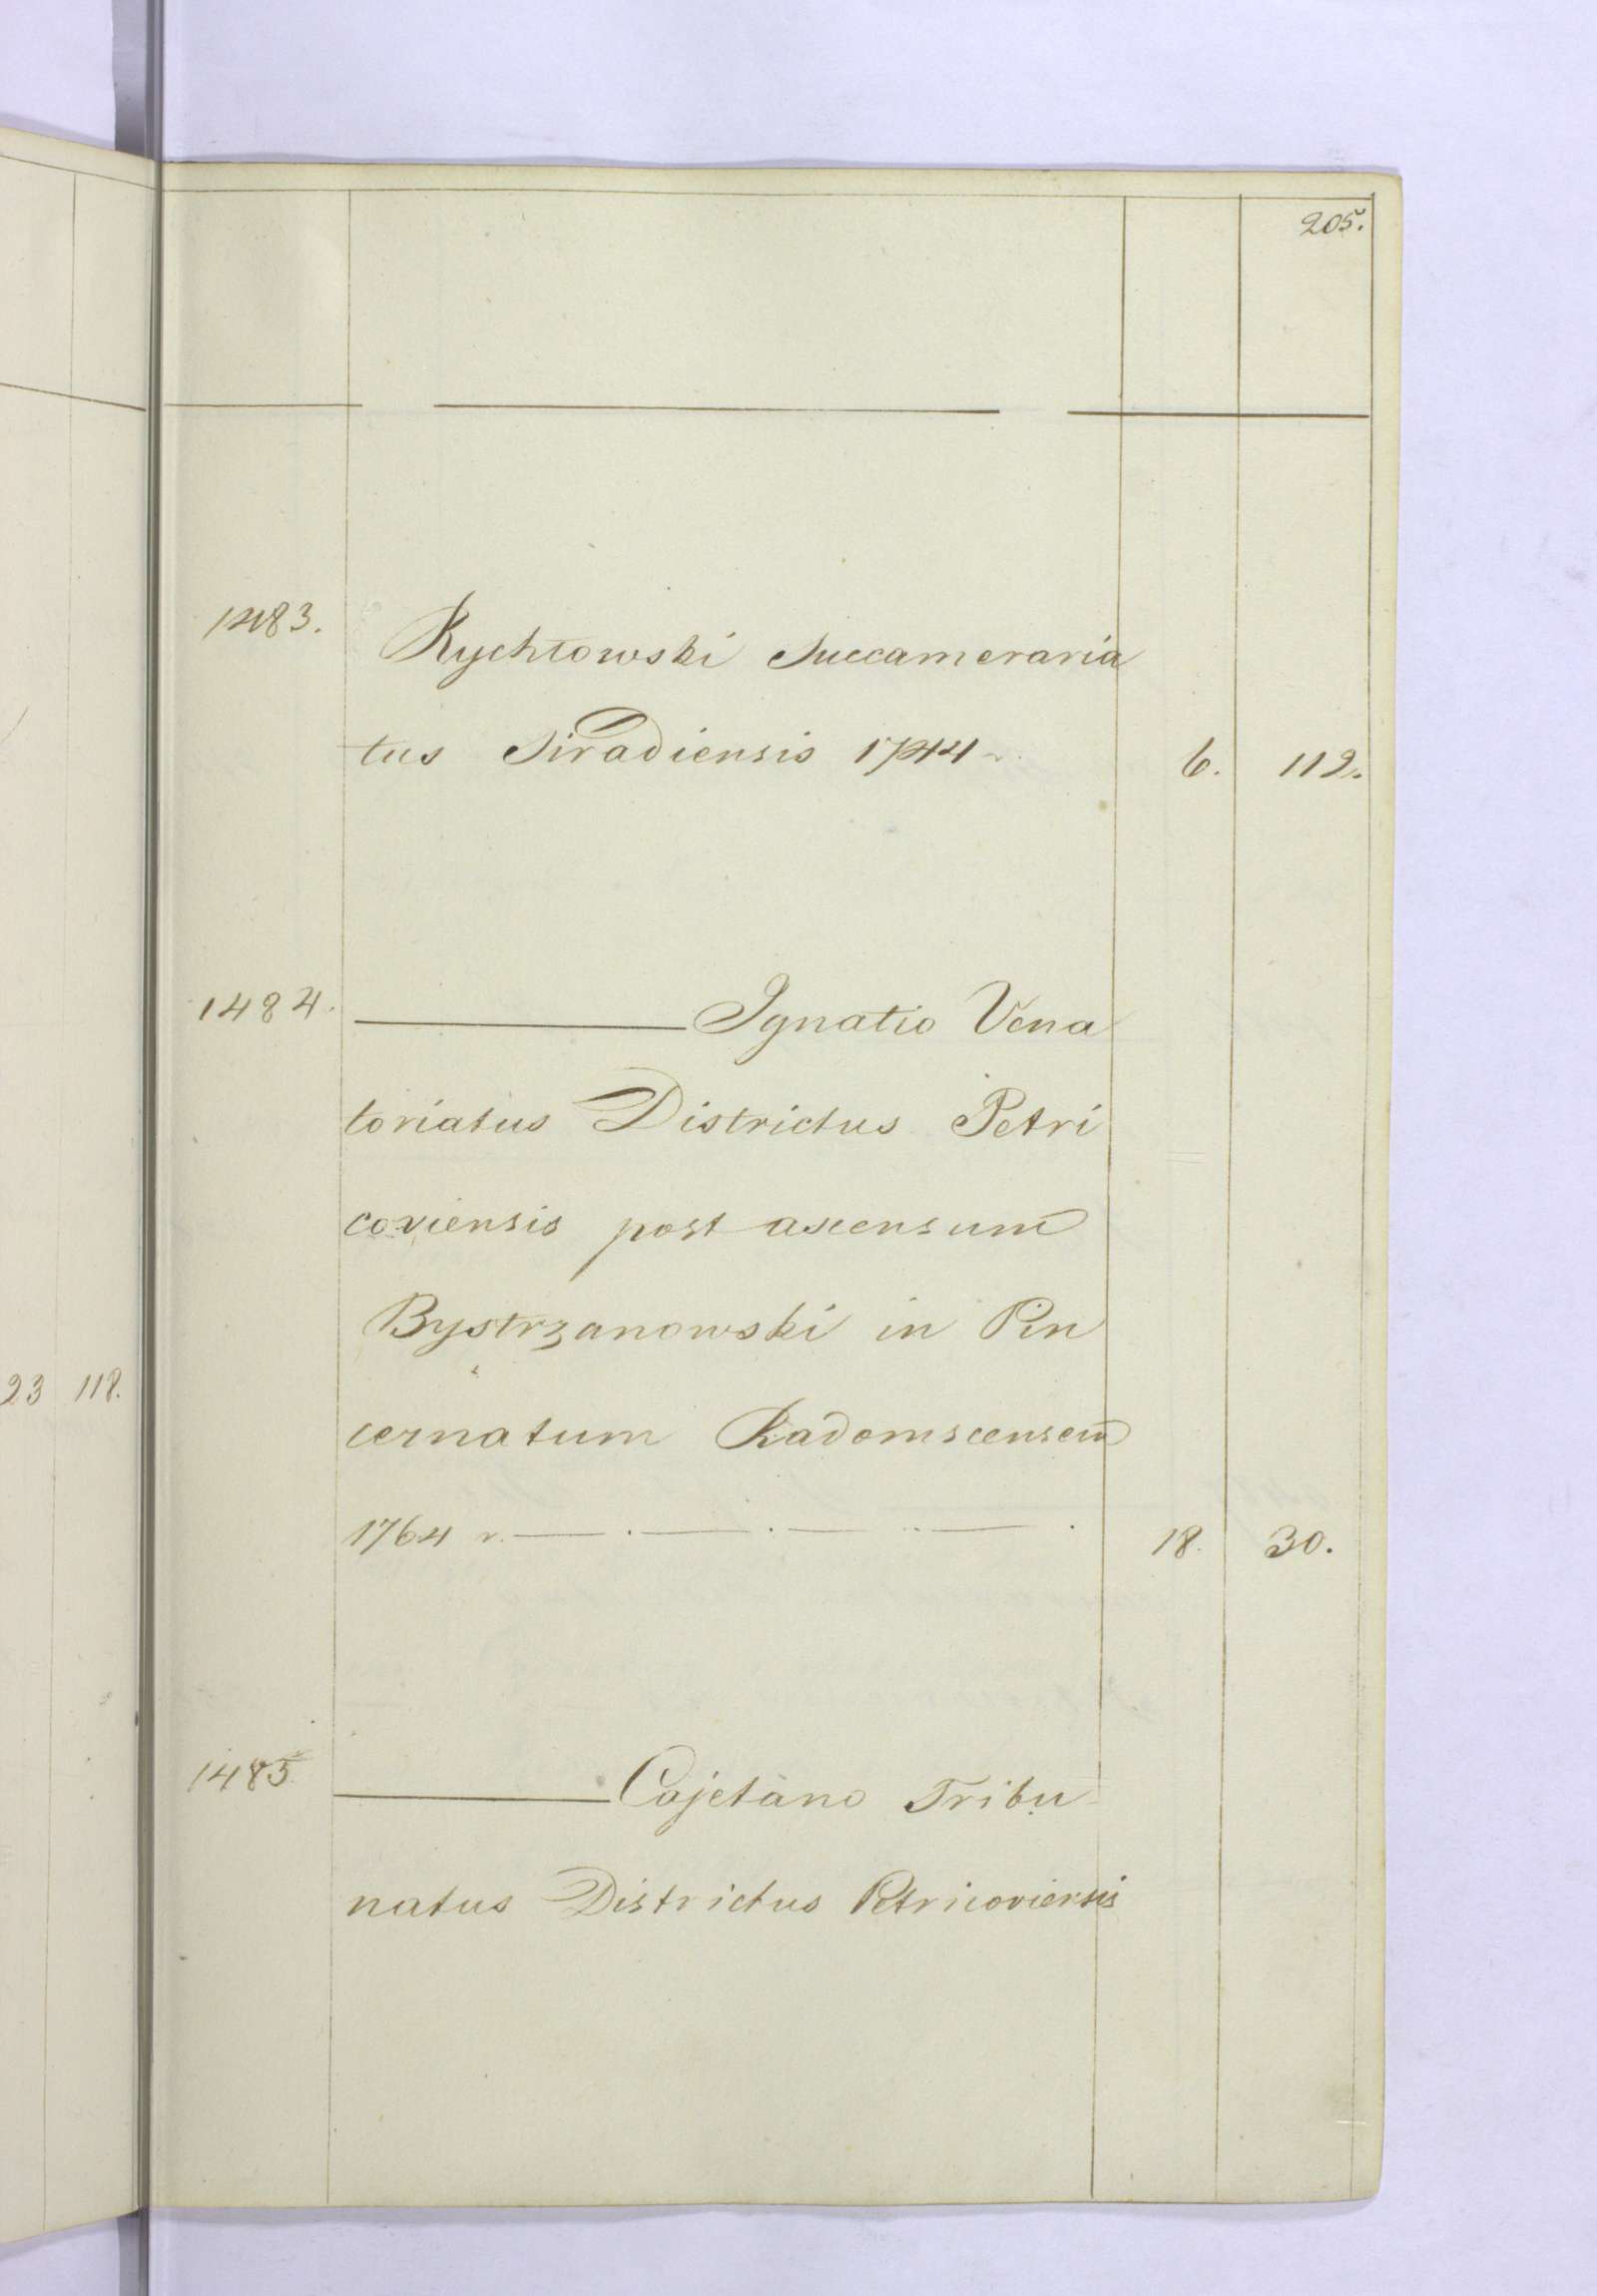 205.
1483.
Rychłowski Succameraria
tus Siradiensis 1744 r. 6. 112.
1484.
Ignatio Vena
toriatus Districtus Petri
coviensis post ascensum
Bystrzanowski in Pin
cernatum Radomscensem
1764 r. 18. 30.
23 118.
1485
Cajetano Tribu
natus Districtus Petricoviensis